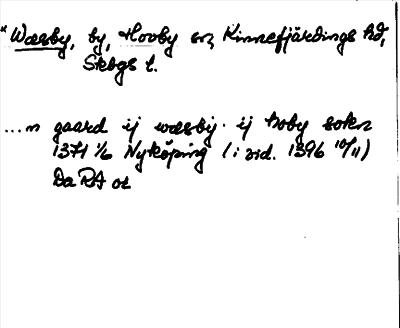 * Wæsby, by, Hovby sn, Kinnefjärdings hd,
Skbgs l.
...n gaard ij wæsby ij hoby sokn
1371 1/6 Nyköping (i vid. 1396 10/11)
Da RA or